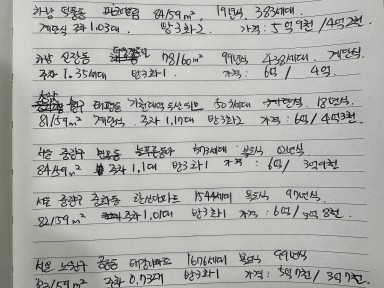 하남 덕풍동 84/59m², 19년식, 383세대
계단식 주차 1.03대, 방3화2 가격: 5억9천/4억2천
하남 신장동 78/60m² 99년식 438세대 계단식
주차 1.35세대 방3화1 가격: 6억/4억
503세대 18년식
81/59m² 계단식 주차 1.17대 방3화2 가격: 6억/4억3천
서울 중랑구 면목동 복도식 02년식
84/59m² 주차 1.1대 방3화1 가격: 6억/3억9천
서울 중랑구 중화동 한신아파트 1544세대 복도식 97년식
82/59m² 주차 1.01대 방3화1 가격: 6억/3억8천
서울 노원구 공릉동 태강아파트 1676세대 복도식 99년식
82/59m² 주차 0.73대 방3화1 가격: 5억7천/3억7천